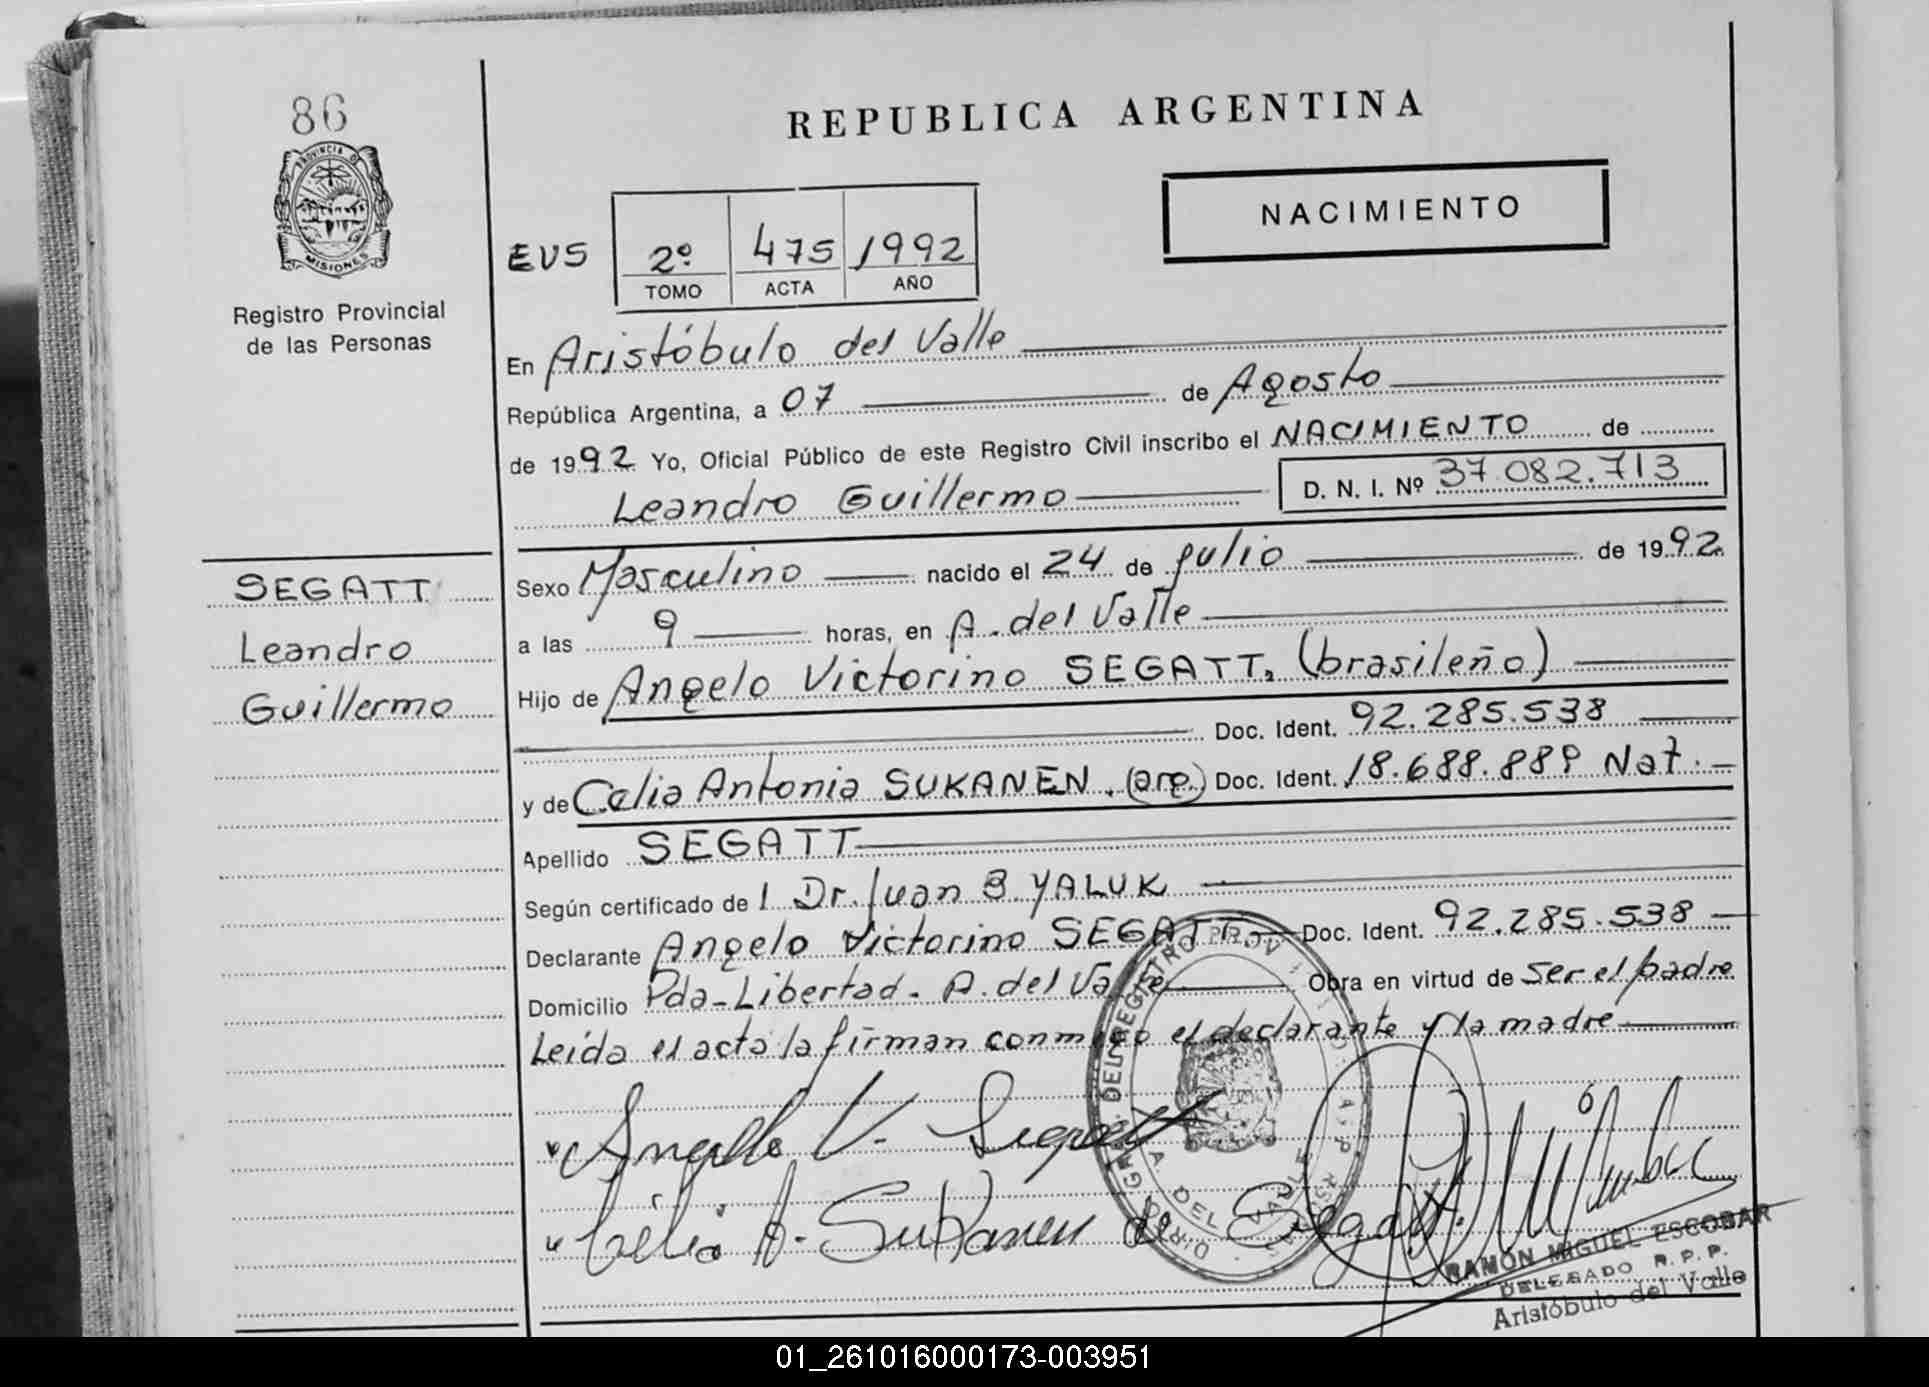 86
PROVINCIA DE
MISIONES
Registro Provincial
de las Personas
REPUBLICA ARGENTINA
NACIMIENTO
EVS 2º 475 1992
TOMO ACTA AÑO
En Aristóbulo del Valle
República Argentina, a 07 de Agosto
de 1992 Yo, Oficial Público de este Registro Civil inscribo el NACIMIENTO de
Leandro Guillermo D. N. I. Nº 37.082.713
SEGATT
Leandro
Guillermo
Sexo Masculino nacido el 24 de Julio de 1992.
a las 9 horas, en A. del Valle
Hijo de Angelo Victorino SEGATT, (brasileño)
Doc. Ident. 92.285.538
y de Celia Antonia SUKANEN. (arg.) Doc. Ident. 18.688.889 Nat.
Apellido SEGATT
Según certificado de l Dr. Juan B YALUK
Declarante Angelo Victorino SEGATT Doc. Ident. 92.285.538
Domicilio Pda-Libertad. A. del Valle Obra en virtud de ser el padre
Leida el acta la firman conmigo el declarante y la madre
Angelo V. Segatt
Célia A. Sukanen de Segatt.
DEL REGISTRO PROV
DEL VALLE
RAMÓN MIGUEL ESCOBAR
DELEGADO R. P. P.
Aristóbulo del Valle
01_261016000173-003951